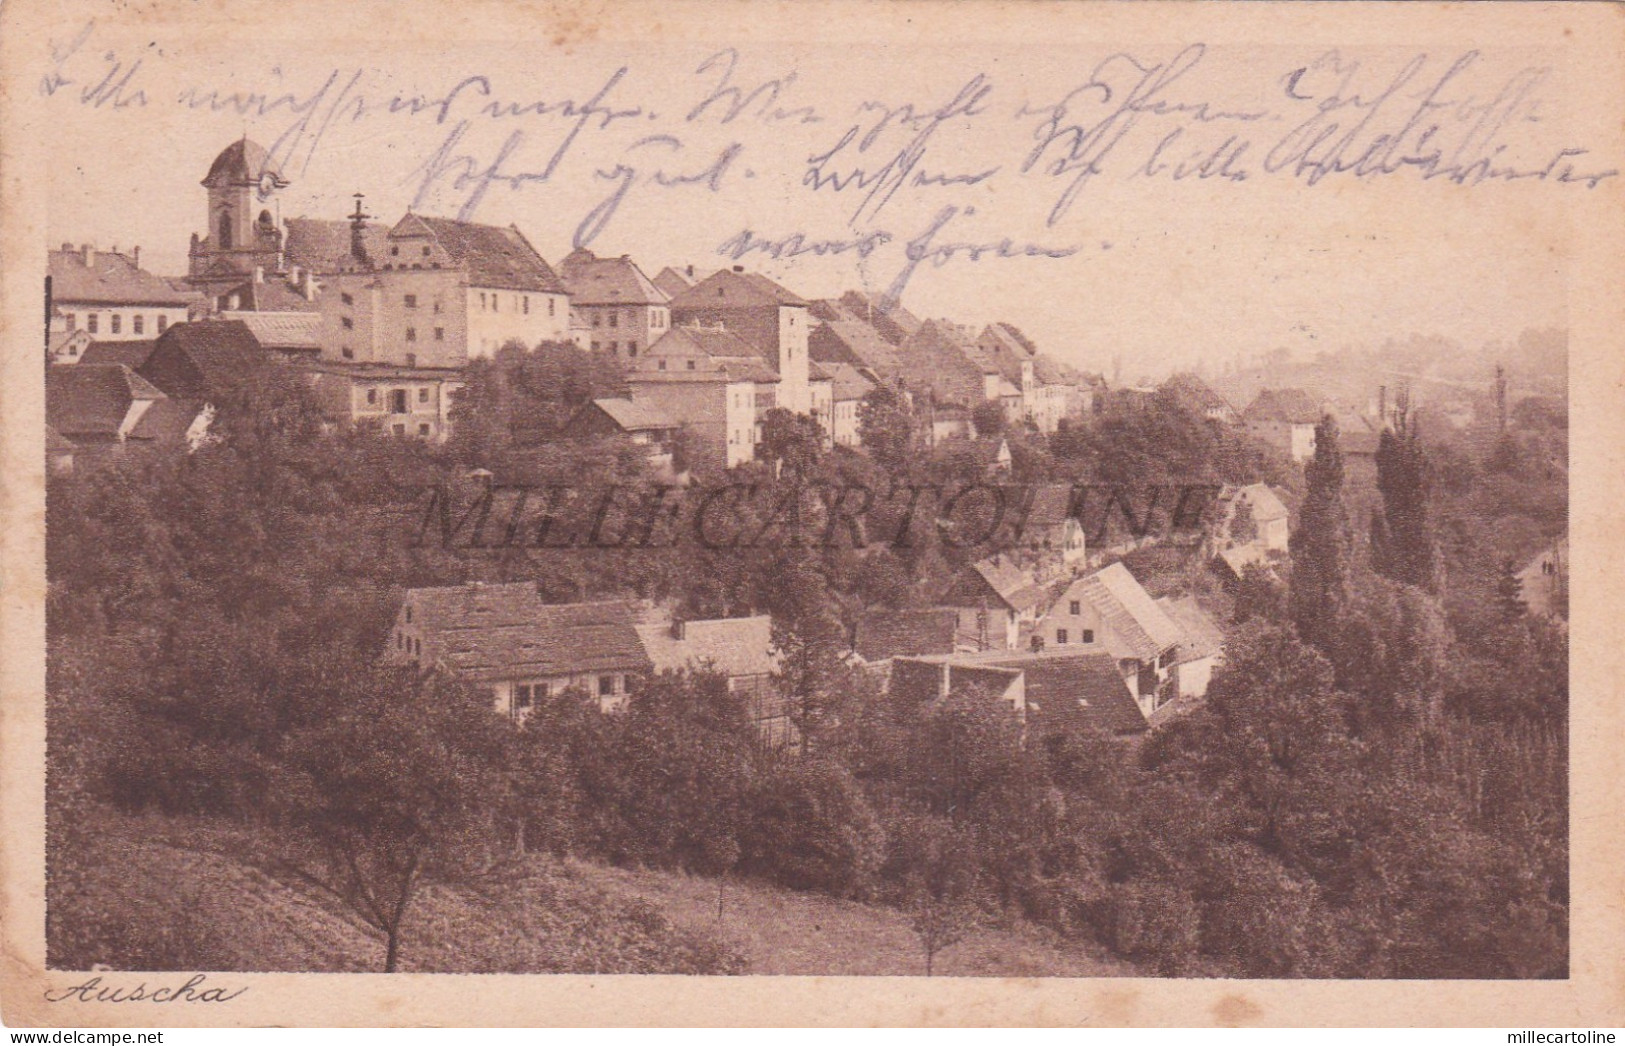 Bitte nächsens mehr. Wie geht es Ihnen. Ich hoffe
sehr gut. Lassen Sie bitte bald wieder
etwas hören.
MILLECARTOLINE
Auscha
millecartoline